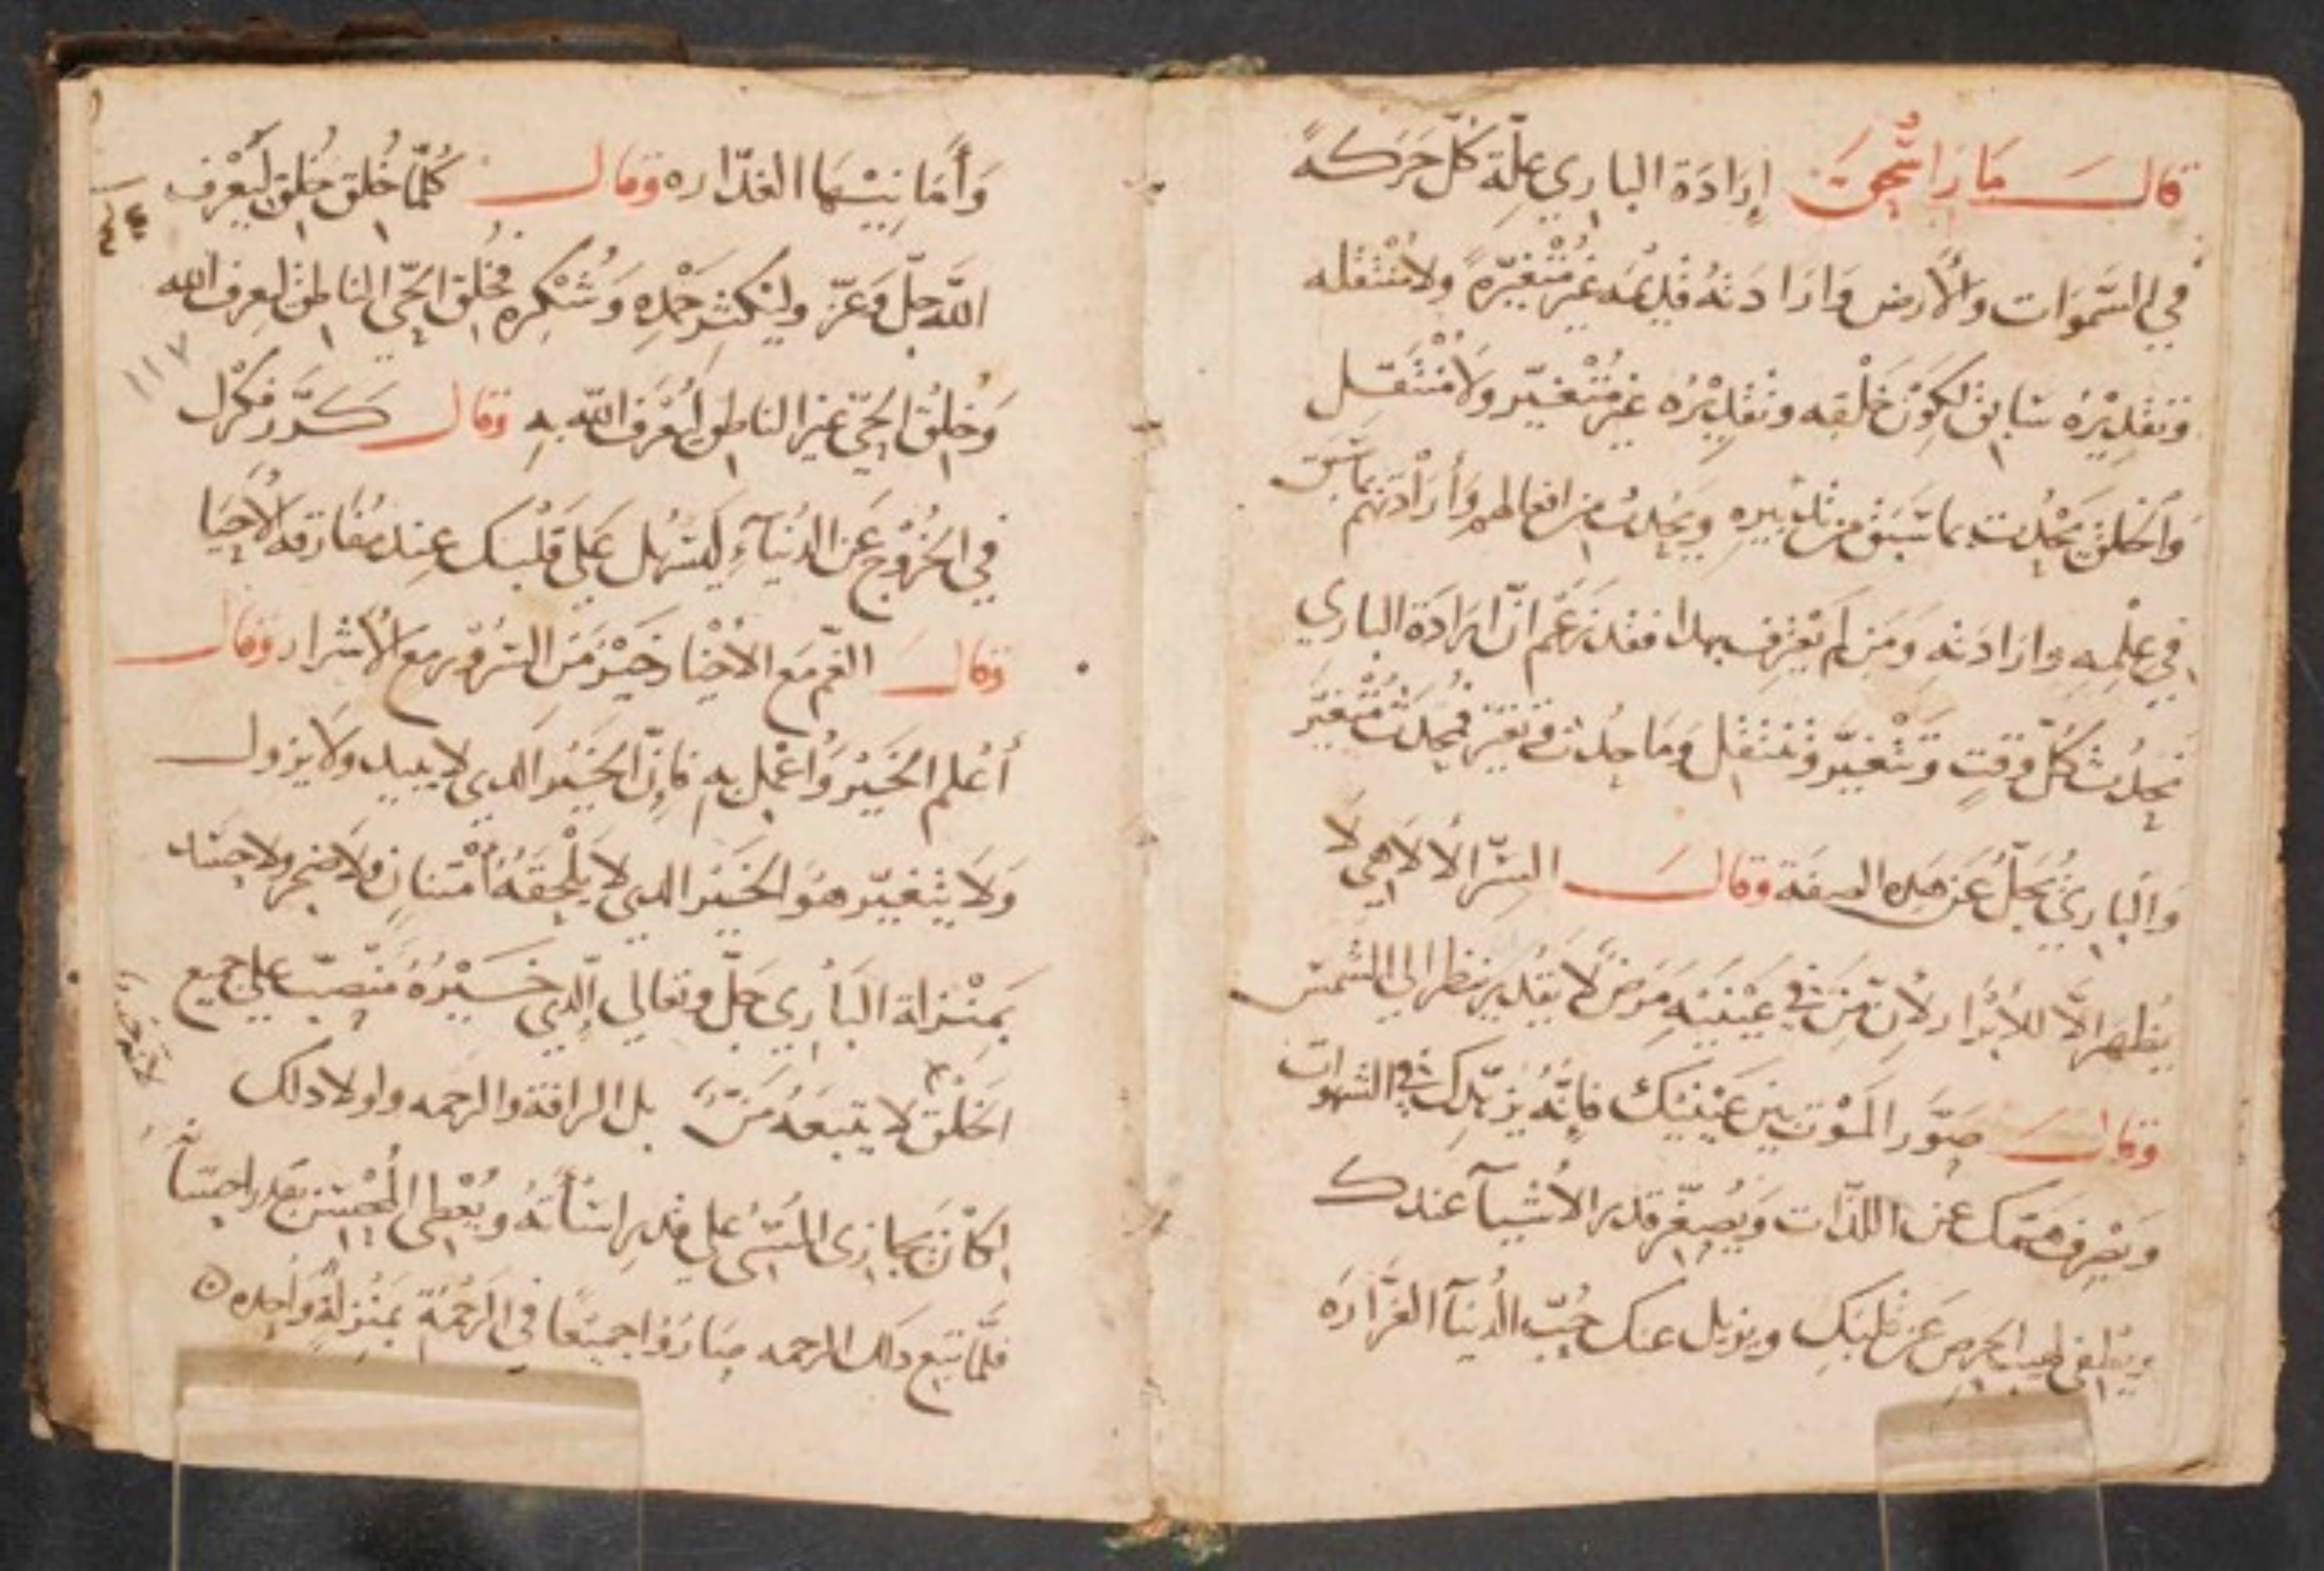 قالـــ مار اسحق إرادة الباري علّة كلّ حَرَكةً
في السَّموَات والأرض وَارَادَته قَديمَه غير مُتْغيّرةً ولا مُنتْقله
وَتقديْرُه سَابق لكَوْن خَلْقه وتقديْرُه غير مُتْغيّر وَلا مُنْتَقِل
وَالخلق يَحْدُث بما سَبَق من تدبيره ويَحدث من افعالهم وَأرَادَتهم ما سَبق
في علْمِه وارَادَته وَمَن لَم يَعْرف بهدا فقد زَعَم انَّ ارَادَة الباري
تحدُث كُلّ وَقتٍ وَتْتغيّر وَتنتقل وَمَا حدُث وَتغيّر فمُحدَث مُتْغيّر
وَالباريُ يَجَلّ عَن هَده الصفَة وقالـــ السّر الالاهي لا
يُظهر الَّا للأبْرَار لأن مَن في عَيْنَيْه مَرَضٌ لا يَقدر ينظر الي الشمس
وقالـــ صَوّر المَوْت بين عَيْنَيْك فإنّه يُزَهّدك في الشهوات
وَيصْرف همّتك عن اللدّات وَيُصغّر قدر الأشيآ عندك
ويُطفي لهيب الحرص عَن قلبَك ويزيل عنك حُبّ الدُنيآ الغرَّارَه
وَأمَانيْهَا الغدّاره وقالـــ كُلّمَا خُلق خُلق ليَعْرف
اللَّه جلّ وَعَزّ وليكثر حَمْدِه وَشُكْرِه فخُلق الحَيّ الناطق ليعرف الله
وَخُلِقَ الحَيّ غير الناطق ليُعْرَف اللّه به وَقال كَرَّر فكْرك
في الخُرُوْج عَن الدُنيآء ليَسْهُل عَلي قَلْبك عِند مُفَارَقه الأحِبَا
وَقالـــ الغَّم مَع الأخيَار خَيْر مَن السرُوْر مع الأشرار وقالـــ
أعْلم الخَيْر وَاعْمل به فإنّ الخَيْر الدي لا يبيد وَلا يزول
وَلَا يتغيّر هوَ الخَيْر الدي لا يَلْحقَهُ أمْتنانٍ ولا ضجر ولا حسَد
بمَنْزلة البَاري جَلّ وتعالي الّدي خَـيْرُهُ مُنْصبّ علي جميع
الخَلْق لا يتبَعَهُ مَنّ بل الرافة والرحمه ولولا دلك
لكَانَ يجازي المُسيُ علي قدر اسَأَتهُ ويُعْطي المُحْسن بقدر احسَانه
فلَّما تبع دلك الرحمه صَارُوا جميْعًا في الرَحْمَة بمنْزلةٍ وَاحِده
١١٧